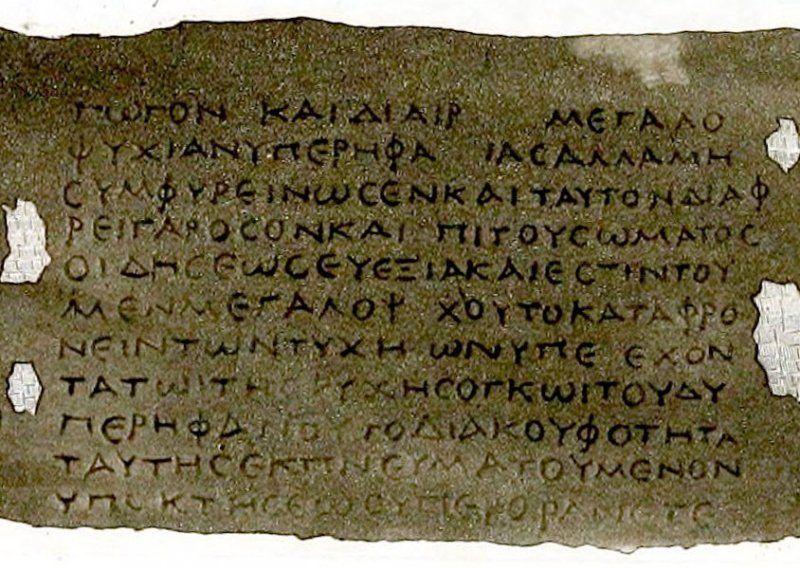 ΠΩΓΟΝ ΚΑΙ ΔΙΑΙΡ ΜΕΓΑΛΟ
ΨΥΧΙΑΝ ΥΠΕΡΗΦΑ ΙΑϹ ΑΛΛΑ ΜΗ
ϹΥΜΦΥΡΕΙΝ ΩϹ ΕΝ ΚΑΙ ΤΑΥΤΟΝ ΔΙΑΦ
ΡΕΙ ΓΑΡ ΟϹΟΝ ΚΑΙ ΠΙ ΤΟΥ ϹΩΜΑΤΟϹ
ΟΙΔΗϹΕΩϹ ΕΥΕΞΙΑ ΚΑΙ ΕϹΤΙΝ ΤΟΥ
ΜΕΝ ΜΕΓΑΛΟΨ ΧΟΥ ΤΟ ΚΑΤΑΦΡΟ
ΝΕΙΝ ΤΩΝ ΤΥΧΗ ΩΝ ΥΠΕ ΕΧΟΝ
ΤΑ ΤΩΙ ΤΗϹ ΨΥΧΗϹ ΟΓΚΩΙ ΤΟΥ Δ Υ
ΠΕΡΗΦΑΝΟΥ ΤΟ ΔΙΑ ΚΟΥΦΟΤΗΤΑ
ΤΑΥΤΗϹ ΕΚΠΝΕΥΜΑΤΟΥΜΕΝΟΝ
ΥΠΟ ΚΤΗϹΕΩϹ ΥΠΕΡΟΡΑΝ